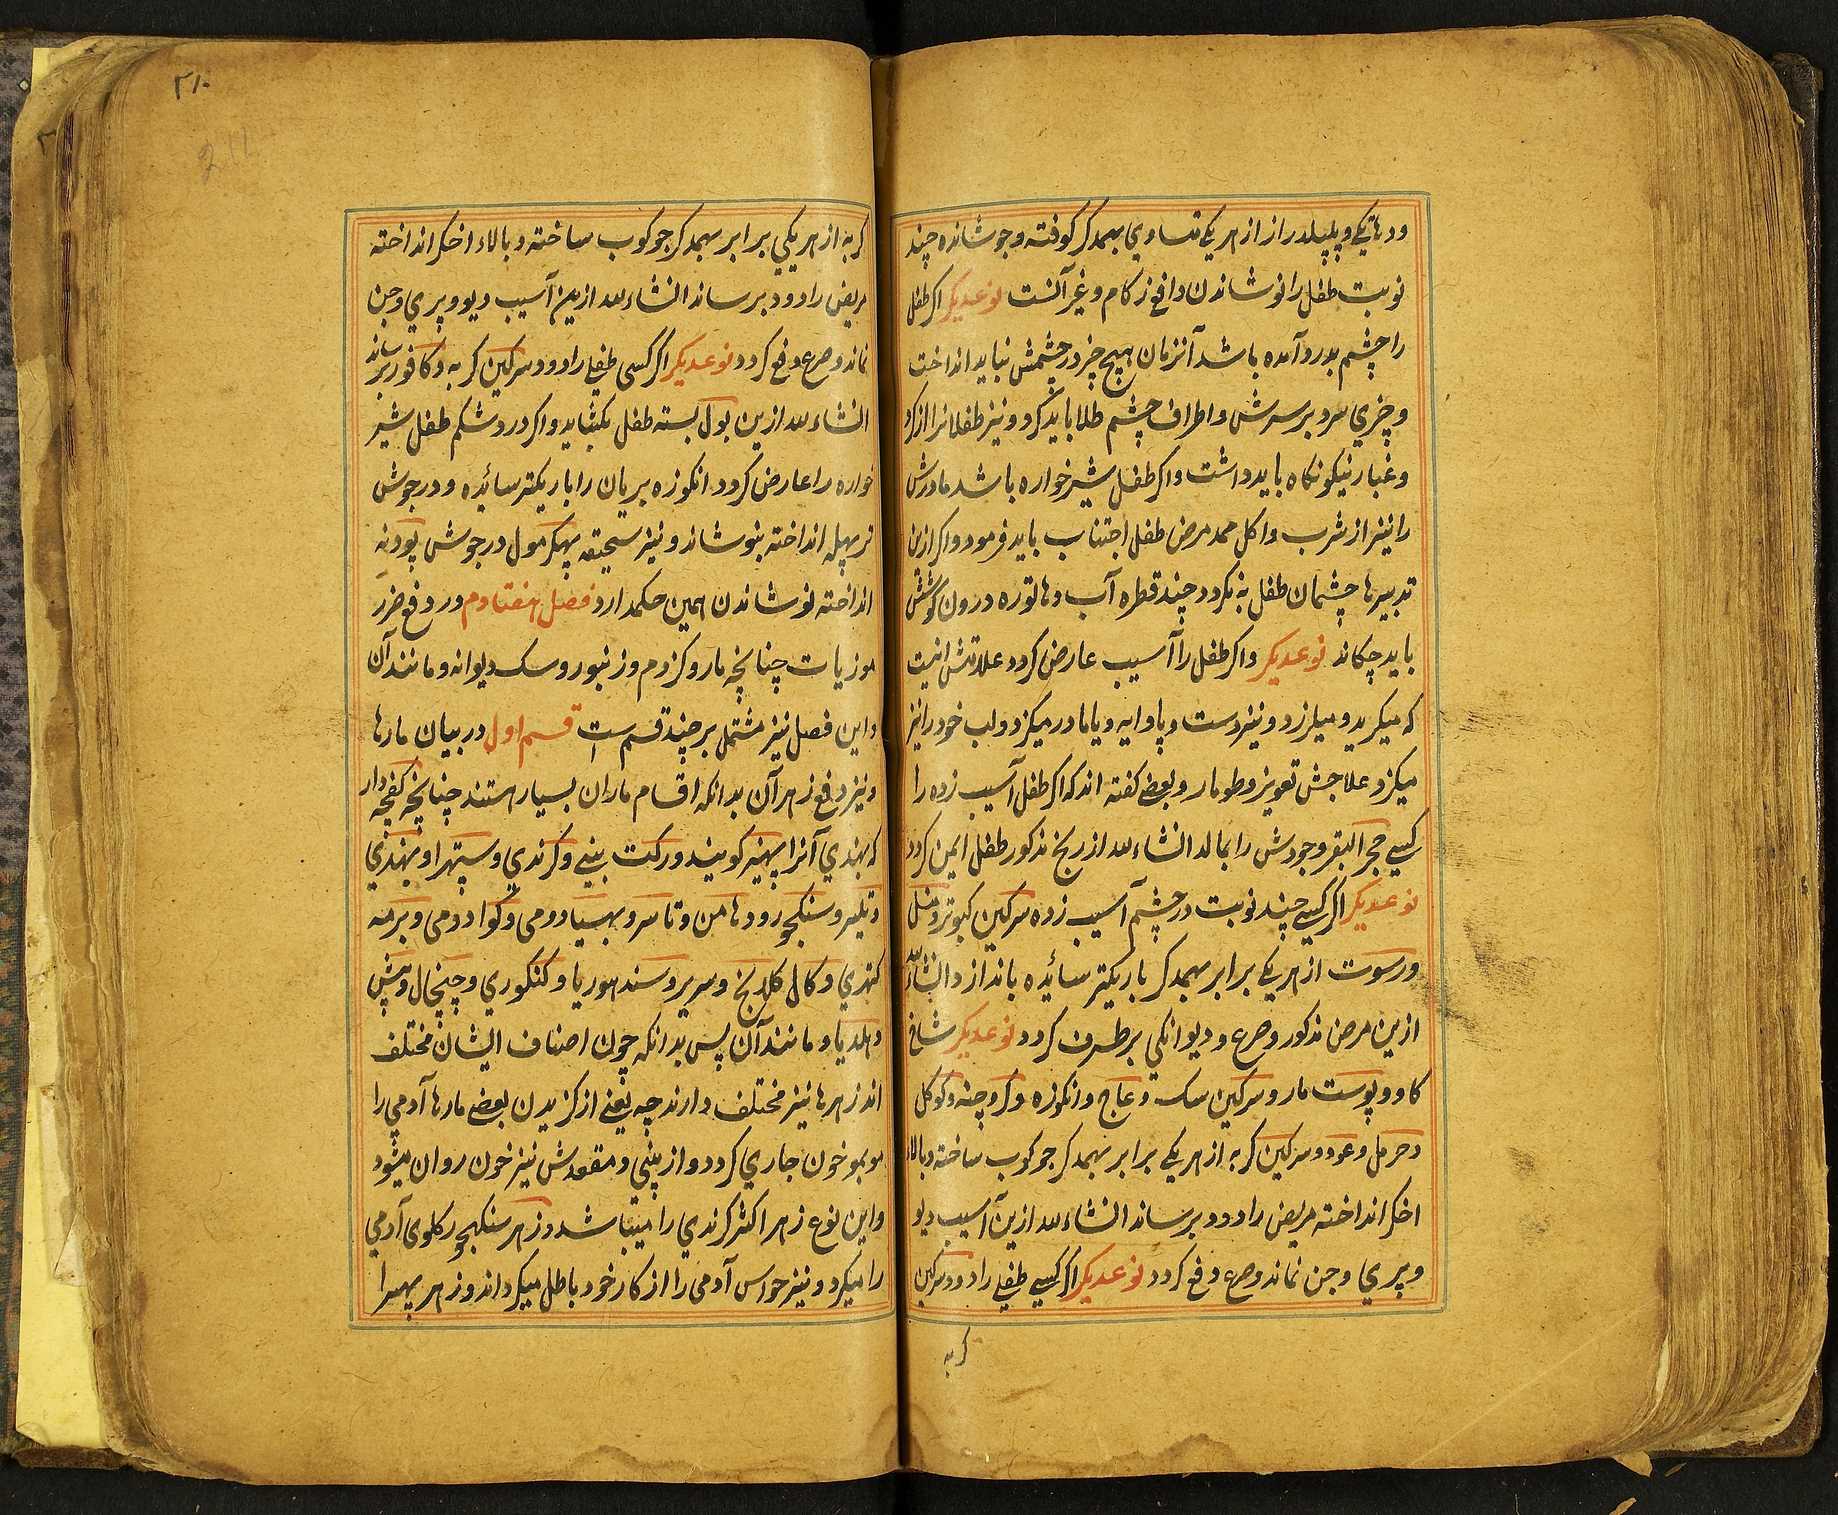 ودهاتکی و پیپلدراز از هر یکے تساوي بهمدکر کوفته و جوشانده چند
نوبت طفل را نوشاندن دافع زکام و غیر آنست نوعدیکر اکر طفل
را چشم بدرد آمده باشد آنزمان هیچ چیز در چشمش نباید انداخت
و چیزي سرد بر سرش و اطراف چشم طلا باید کرد و نیز طفلانرا از کرد
و غبار نیکو نکاه باید داشت و اکر طفل شیرخواره باشد مادرش
را نیز از شرب و اکل ممد مرض طفل اجتناب باید فرمود و اکر ازین
تدبیرها چشمان طفل به نکردد چند قطره آب دهاتوره درون کوشش
باید چکاند نوعدیکر و اکر طفل را آسیب عارض کردد علامتش اینست
که میکرید و میلرزد و نیز دست و پا و ایه و یا مادر میکزد و لب خود را نیز
میکزد و علاجش تعویز و طومار و بعضے کفته اند که اکر طفل آسیب زده را
کسے حجر البقر وجودش را بمالد انشاءلله از رنج مذکور طفل ایمن کردد
نوعدیکر اکر کسے چند نوبت در چشم آسیب زده سرکین کبوتر و فلفل
و رسوت از هر یکے برابر بهمدکر باریکتر سائیده باندازد انشاءلله
ازین مرض مذکور و صرع و دیوانکي برطرف کردد نوعدیکر شاخ
کاو و پوست مار و سرکین سک و عاج و انکوزه و کروچنه و کوکل
و حرمل و عود و سرکین کربه از هر یکے برابر بهمدکر جوکوب ساخته و بالاء
اخکر انداخته مریض را دود برساند انشاءلله ازین آسیب دیو
و پري و جن نماند و صرع دفع کردد نوعدیکر اکر کسے طفلے را دود سرکین
کربه
۲۱۰
211
کربه از هر یکي برابر بهمدکر جوکوب ساخته و بالاء اخکر انداخته
مریض را دود برساند انشاءلله ازین آسیب دیو و پري و جن
نماند و صرع دفع کردد نوعدیکر اکر کسی طفلے را دود سرکین کربه و کافور برساند
انشاءلله ازین بول بسته طفل بکشاید و اکر درد شکم طفل شیر
خواره را عارض کردد انکوزه بریان را باریکتر سائیده و در جوش
تربهله انداخته بنوشاند و نیز سحیقه پهکرمول در جوش پودنه
انداخته نوشاندن همین حکمدارد فصل هفتادم در دفع ضرر
موزیات چنانچه مار و کزدم و زنبور و سک دیوانه و مانند آن
و این فصل نیز مشتمل بر چند قسم ست قسم اول در بیان مارها
و نیز دفع زهر آن بدانکه اقسام ماران بسیار هستند چنانچه کفچه دار
که بهندي آنرا پهنیر کویند و رکت بینے و کرندي و سپتهرا و بهندي
و تلیر و سنکچور و دهامن و تاسر و بهسیا دومی و کوا دومی و برمه
کتهري و کال کلانج و سریر و سندهوریا و کنکوري و چنچال و
و هلدیا و مانند آن پس بدانکه چون اصناف ایشان مختلف
اند زهرها نیز مختلف دارند چه یعنے از کزیدن بعضے مارها آدمی را
موبمو خون جاري کردد و از بینی و مقعدش نیز خون روان میشود
و این نوع زهر اکثر کرندي را میباشد و زهر سنکهچور کلوی آدمي
را میکیرد و نیز حواس آدمی را از کار خود باطل میکرداند و زهر پهیرا